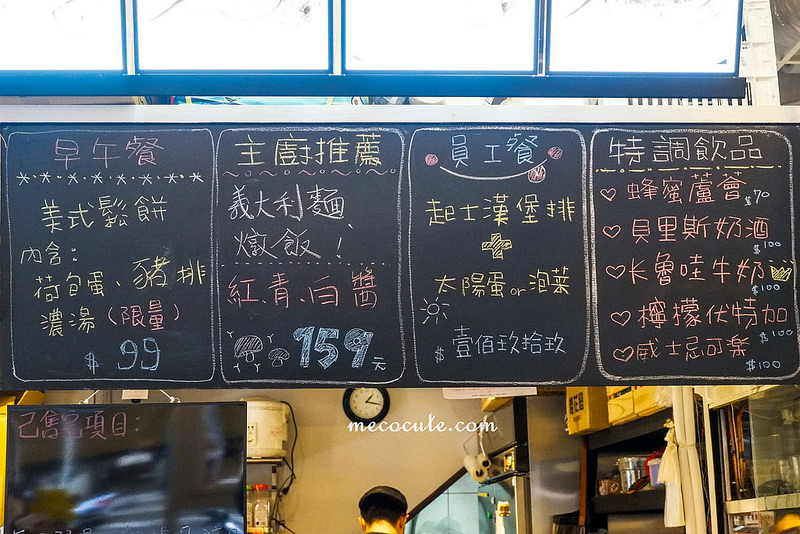 早午餐
美式鬆餅
內含:
荷包蛋、豬排
濃湯(限量)
$ 99
主廚推薦
義大利麵
燉飯!
紅、青、白醬
159元
員工餐
起士漢堡排
+
太陽蛋or泡菜
$ 壹佰玖拾玖
特調飲品
蜂蜜蘆薈 $70
貝里斯奶酒 $100
卡魯哇牛奶 $100
檸檬伏特加 $100
威士忌可樂 $100
已售完項目:
mecocute.com